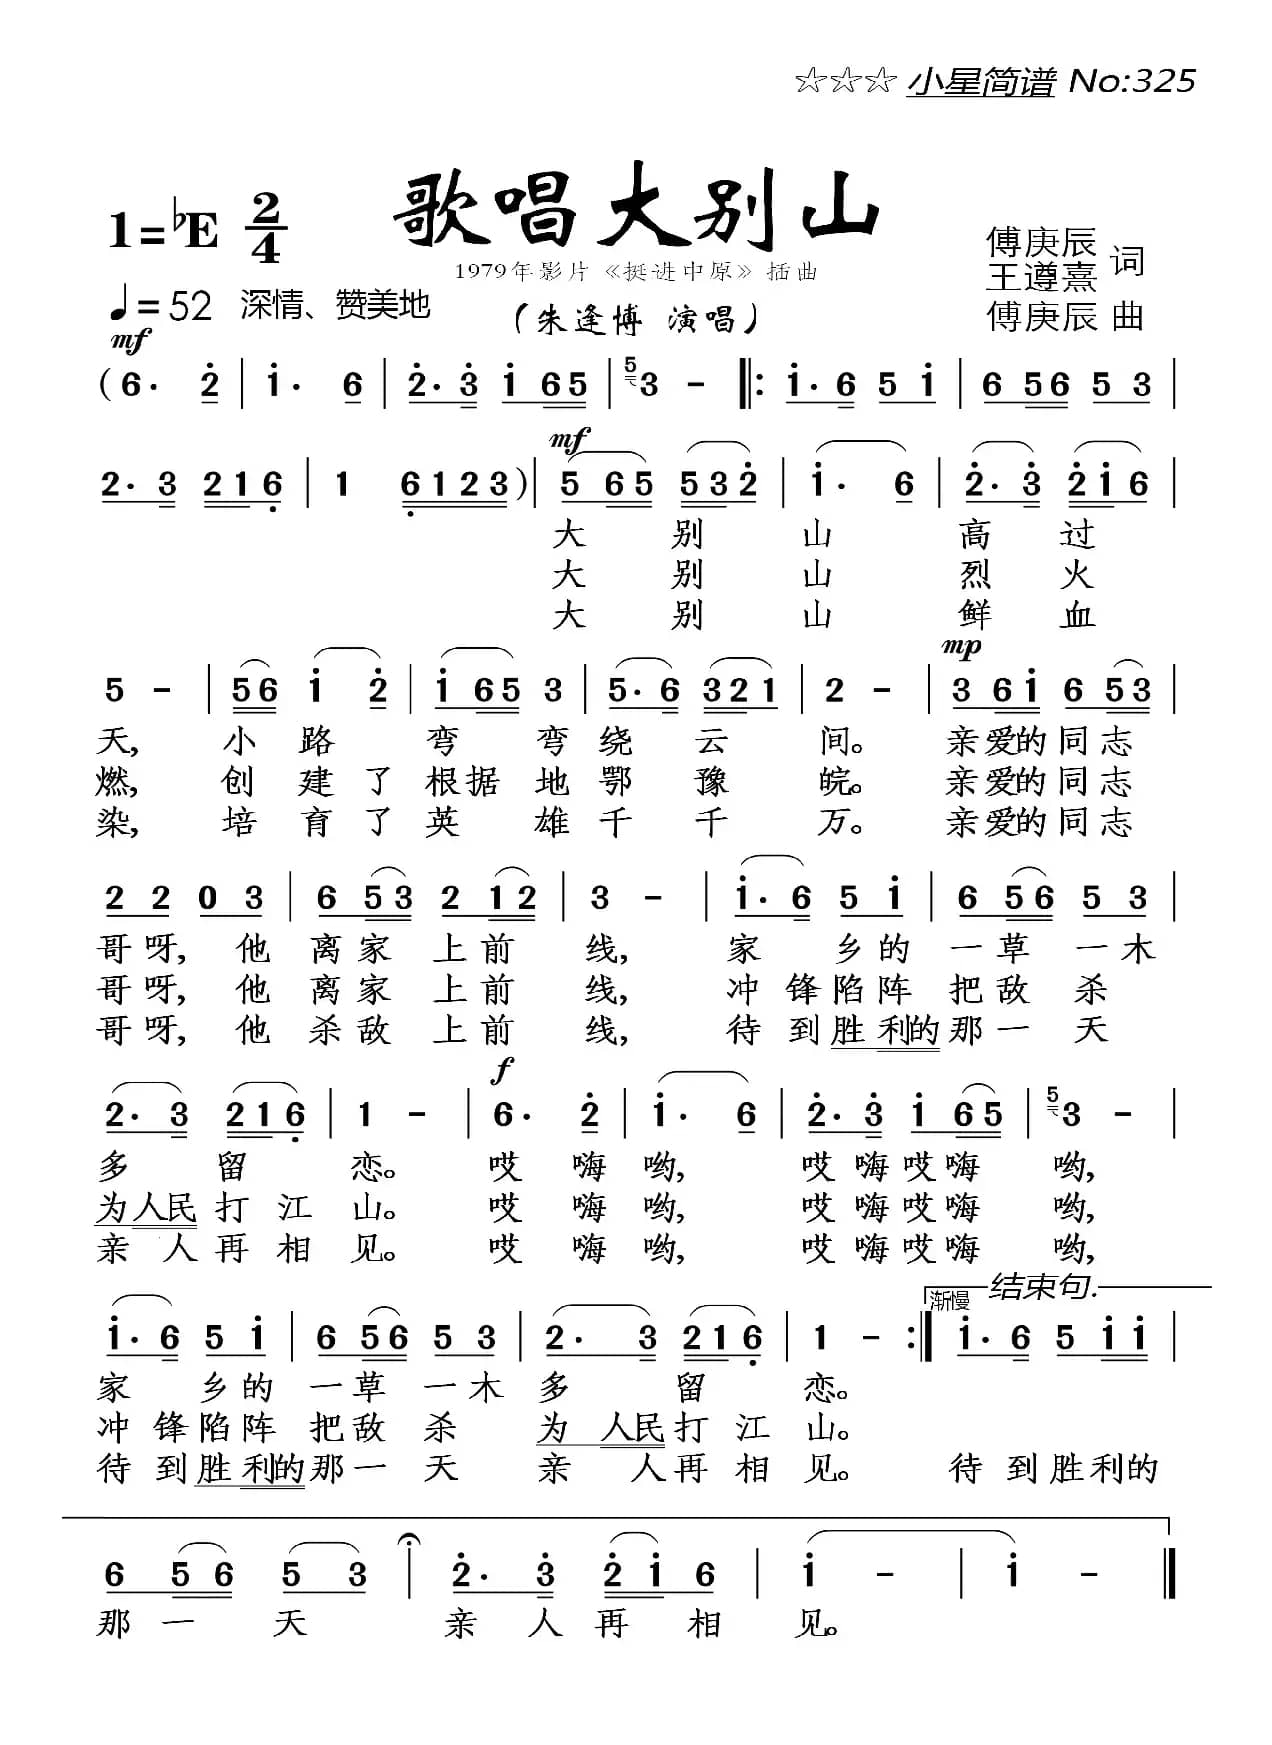 ☆☆☆ 小星简谱 No:325
歌唱大别山
1=♭E 2/4
1979年影片《挺进中原》插曲
(朱逢博 演唱)
傅庚辰
王遵熹 词
傅庚辰 曲
♩=52 深情、赞美地
mf
(6· 2 | 1· 6 | 2· 3 1 65 | 5 3 - |: 1· 6 5 1 | 6 56 5 3 |
mf
2· 3 216 | 1 6123) | 5 65 532 | 1· 6 | 2· 3 216 |
大 别 山 高 过
大 别 山 烈 火
大 别 山 鲜 血
mp
5 - | 56 1 2 | 1 65 3 | 5· 6 321 | 2 - | 3 61 6 53 |
天, 小 路 弯 弯 绕 云 间。 亲爱的同志
燃, 创 建 了 根据 地 鄂 豫 皖。 亲爱的同志
染, 培 育 了 英 雄 千 千 万。 亲爱的同志
2 2 0 3 | 6 53 2 12 | 3 - | 1· 6 5 1 | 6 56 5 3 |
哥呀, 他 离家 上前 线, 家 乡的 一草 一木
哥呀, 他 离家 上前 线, 冲 锋陷阵 把敌 杀
哥呀, 他 杀敌 上前 线, 待 到胜利的那一 天
f
2· 3 216 | 1 - | 6· 2 | 1· 6 | 2· 3 1 65 | 5 3 - |
多 留 恋。 哎 嗨 哟, 哎 嗨哎嗨 哟,
为人民打 江 山。 哎 嗨 哟, 哎 嗨哎嗨 哟,
亲 人再 相 见。 哎 嗨 哟, 哎 嗨哎嗨 哟,
渐慢 结束句.
1· 6 5 1 | 6 56 5 3 | 2· 3 216 | 1 - :| 1· 6 5 1 1 |
家 乡的 一草 一木 多 留 恋。
冲 锋陷阵 把敌 杀 为 人民打 江 山。
待 到胜利的那一 天 亲 人再 相 见。 待 到胜利的
6 56 5 3 | 2· 3 2 1 6 | 1 - | 1 - |
那 一 天 亲 人 再 相 见。